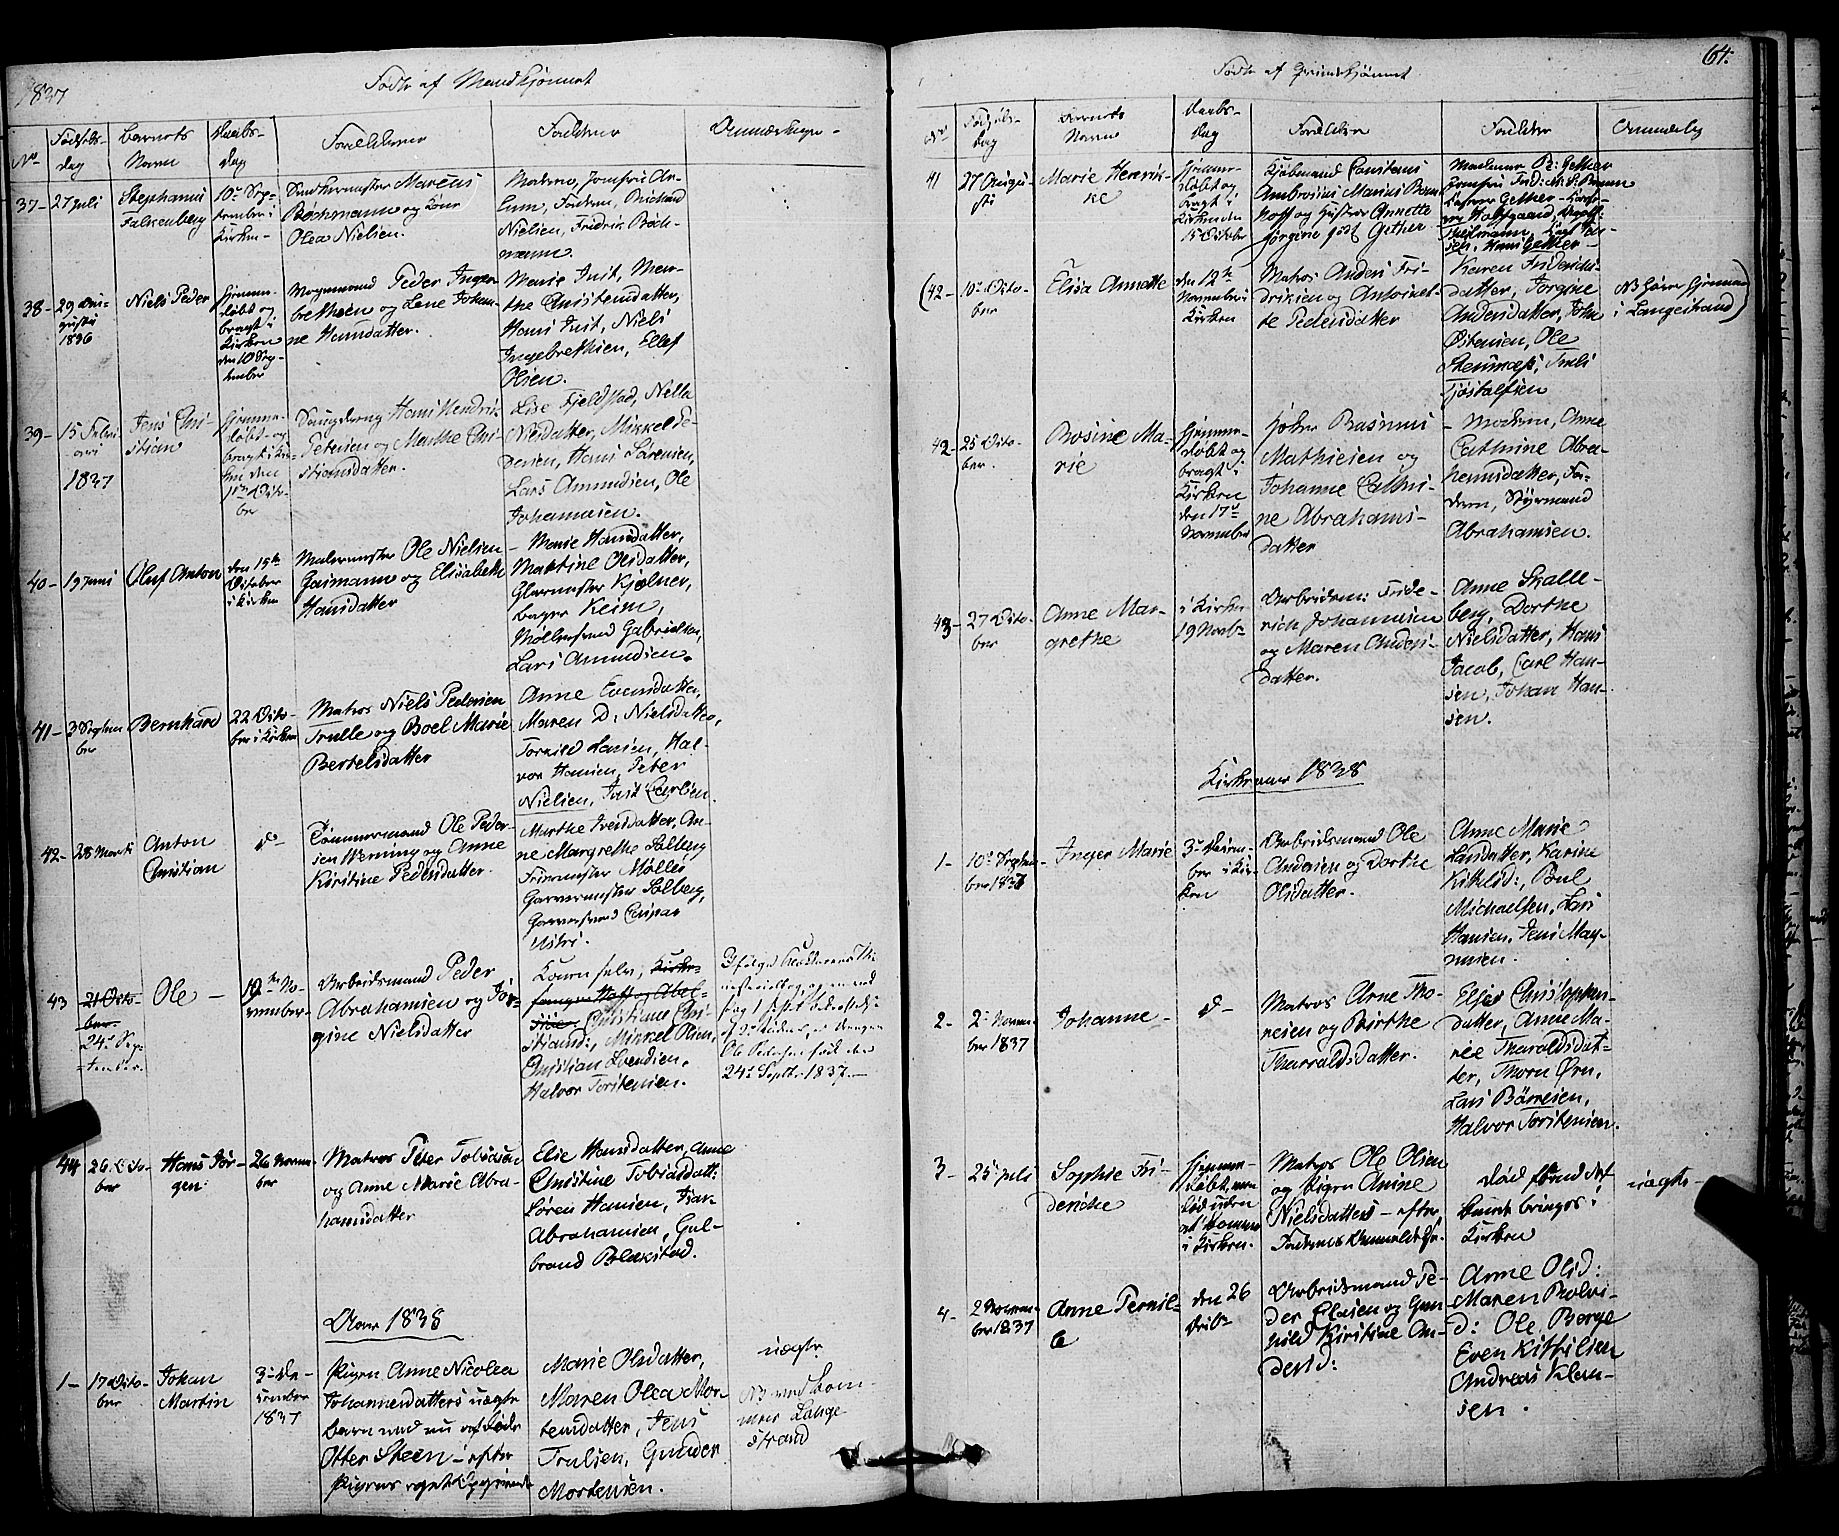 1837
Fødte af Mandkjønnet
No
Fødsels-
dag
Barnets
Navn
Daabs-
dag
Forældrene
Faddere
Anmærkninger
37- 27 Juli
Stephanus
Falkenberg
10de Sep-
tember i
Kirken-
Snedkermester Marcus
Böchmann og Kone
Olea Nielsen.
Moderen, Jomfru
Faderen, Richard
Nielsen, Fridrik Böch-
mann
38- 29 Au-
gusti
1836
Niels Peder
hjemme-
døbt og
bragt i
Kirken
den 10 Sep-
tember
Peder Inge-
brethsen og Lene Johan-
ne Hansdatter.
Marie Just, Mar-
the Christensdatter,
Hans Just, Niels
Ingebrethsen, Ellef
Olsen.
39- 15 Febru-
ari
1837
Jens Chri-
stian
hjemme-
døbt og
bragt i Kir-
ken den
1ste Octo-
ber
Hans Hendrik
Petersen og Marthe Chri-
stiansdatter.
Lise Fjeldstad, Nella
Nielsdatter, Mikkel Pe-
dersen, Hans Sörensen,
Lars Amundsen, Ole
Johannesen.
40- 19 Juni
Oluf Anton
den 15de
October
i Kirken
Malermester Ole Nielsen
Gasmann og Elisabeth
Hansdatter
- Marie Hansdatter,
Martine Olsdatter,
Glarmester Kjølner,
Bager Keim,
Møllersvend Gabrielsen,
Lars Amundsen.
41- 3 Septem-
ber
Bernhard
22 Octo-
ber i Kirken
Matros Niels Pedersen
Trulle og Boel Marie
Bertelsdatter
Anne Evensdatter,
Maren D: Nielsdatter,
Torkild Larsen, Hal-
vor Hansen, Peter
Nielsen, Just Carlsen.
42- 28 Marti
Anton
Christian
d-
Tømmermand Ole Peder-
sen Werning og Anne
Kirstine Pedersdatter.
Marthe Iversdatter, An-
ne Margrethe Solberg
Møller
Garvermester Solberg,
Garversvend Caspar
43
21 Octo-
ber.
24de Sep-
tember.
Ole -
19de No-
vember-
Arbeidsmand Peder
Abrahamsen og Jør-
gine Nielsdatter
Konen selv,
Christiane Chri-
stiansd:, Mikkel Olsen,
Christian Svendsen,
Halvor Torstensen.
Ole Pedersen født den
24de Septbr. 1837.-
44
26. Octo-
ber
Hans Jør-
gen
26 Novem-
ber
Matros Peter Tobiasen
og Anne Marie Abra-
hamsdatter
Elie Hansdatter, Anne
Christine Tobiasdatt:
Søren Hansen, Isak
Abrahamsen, Gul-
brand Blakstad.
Aar 1838
1- 17 Octo-
ber
Johan
Martin
3- De-
cember
1837
Pigen Anne Nicolea
Johannesdatters uægte
Barn med
Otter Steen - efter
Pigens eget Opgivende
Marie Olsdatter,
Maren Olea Mor-
tensdatter, Jens
Trulsen, Gunder
Mortensen.
uægte
NB
Lange-
strand
64.
Fødte af Qvindekjønnet
No
Fødsels-
dag
Barnets
Navn
Daabs-
dag
Forældre
Faddere
Anmærkning
41 27 Augu-
sti
Marie Henrik-
ke
hjemme-
døbt og
bragt i
Kirken den
15 October
Kjøbmand Constans
Ambrosius Marius Bern-
hoff og Hustrue Annette
Jørgine født Gether
(42- 10de Octo-
ber
Elisa Annette
den 12te
November i
Kirken
Matros Anders Fri-
driksen og Antonet-
te Pedersdatter
Karen Friderichs-
datter, Jorgine
Andersdatter, John
Østensen, Ole
Steunæss, Truls
Tjøstalfsen
NB hører hjemme
i Langestrand)
42- 25 Octo-
ber.
Rosine Ma-
rie
hjemme-
døbt og
bragt i
Kirken
den 17de
November
Rasmus
Mathiesen og
Johanne Cathri-
ne Abrahams-
datter
- Moderen, Anne
Cathrine Abra-
hamsdatter, Fa-
deren, Styrmand
Abrahamsen.
43- 27 Octo-
ber
Anne Mar-
grethe
i Kirken
19 Novbr
Arbeidsm: Fride-
rich Johannesen
og Maren Anders-
datter.
Anne Skalle-
berg, Dorthe
Nielsdatter, Hans
Jacob, Carl Han-
sen, Johan Han-
sen.
Kirkeaar 1838
1- 10de Septem-
ber 1837
Inger Marie
3de Decem-
ber i Kir-
ken
Arbeidsmand Ole
Andersen og Dorthe
Olsdatter.
Anne Marie
Larsdatter, Karine
Kittilsd:, Poul
Michaelsen, Lars
Hansen, Jens Mag-
nusen.
2- 2de Novem-
ber 1837
Johanne -
d-
Matros Arne Tho-
resen og Birthe
Tharaldsdatter.
Elses Christophers-
datter, Anne Ma-
rie Tharaldsdat-
ter, Thorn Ørn,
Lars Børresen,
Halvor Torstensen.
3- 25 Juli
Sophie Fri-
deriche
hjemme-
døbt, men
død uden
at komme
i Kirken.
Matros Ole Olsen
og Pigen Anne
Nielsdatter - efter
død førend det
kunde bringes i
Kirken
uægte-
4- 2 Novem-
ber 1837
Anne Pernil-
le
den 26
Decbr
Arbeidsmand Pe-
der Olsen og Gun-
hild Kirstine An-
dersd:
Anne Olsd:
Maren Rolvs-
d: Ole Berge
Even Kittilsen
Andreas Klau-
sen.